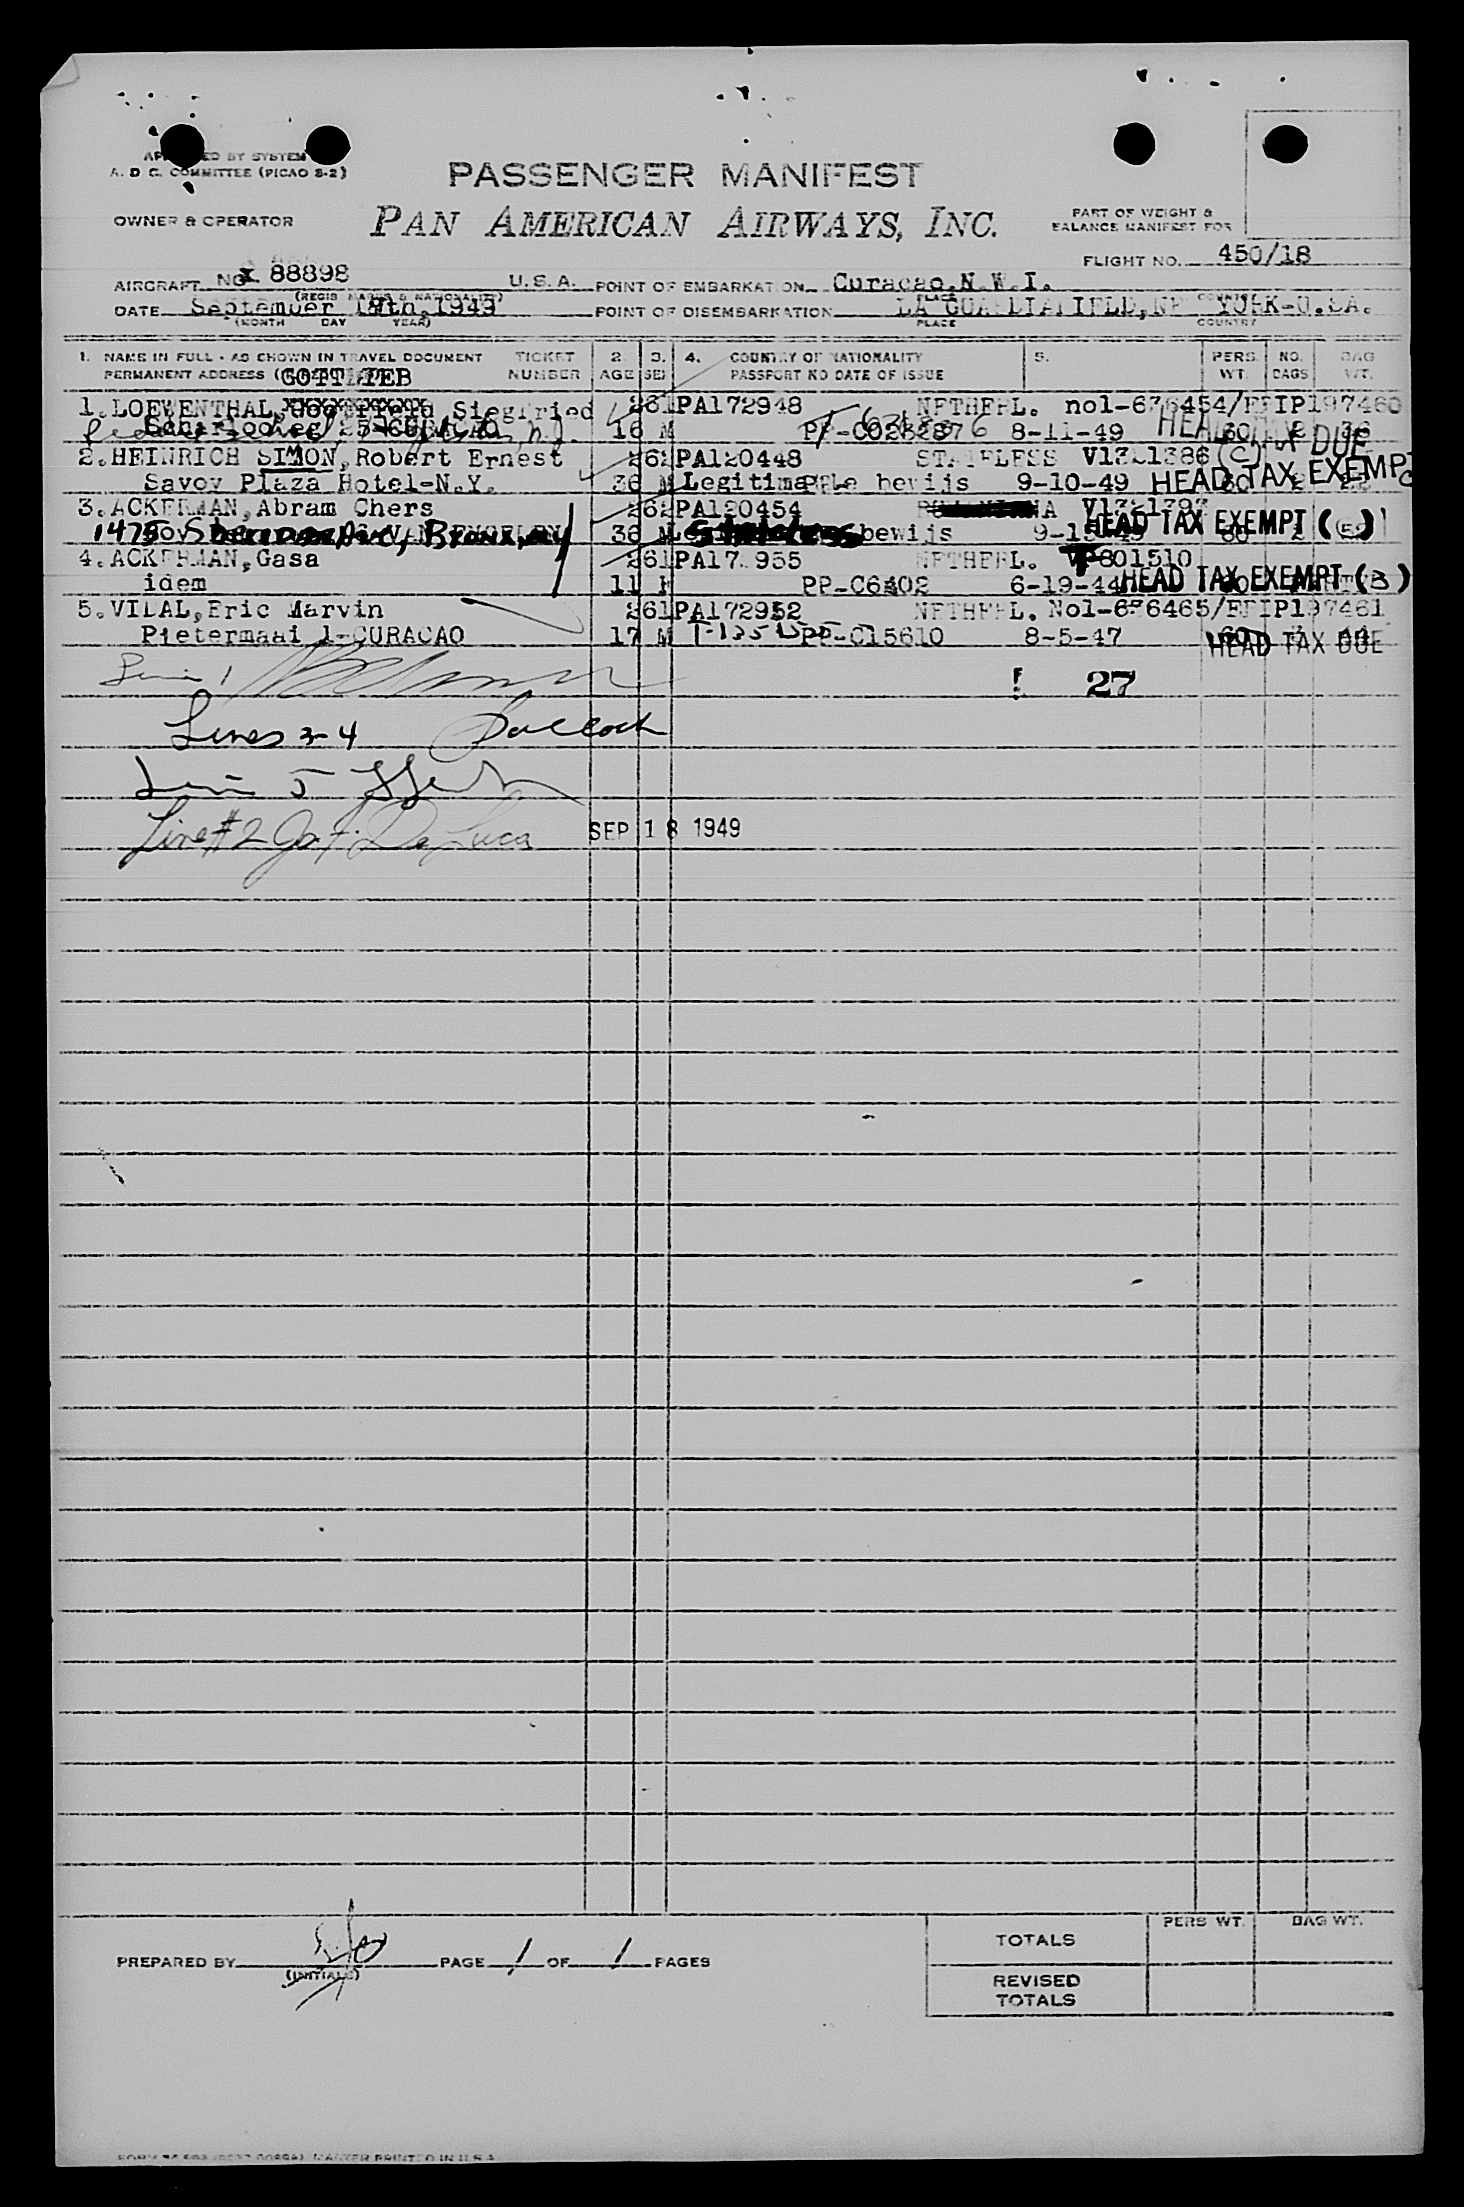 BY SYSTEM
A. D C. COMMITTEE (PICAO S-2)
PASSENGER MANIFEST
OWNER & OPERATOR
PAN AMERICAN AIRWAYS, INC.
PART OF WEIGHT &
BALANCE MANIFEST FOR
FLIGHT NO. 450/18
AIRCRAFT NC 88898 U.S.A. POINT OF EMBARKATION Curacao,N.W.I.
(REGIS MARKS & NATIONALITY) PLACE COUNTRY
DATE September 18th,1949 POINT OF DISEMBARKATION LA GUARDIAFIELD,NEW YORK-U.SA.
(MONTH DAY YEAR) PLACE COUNTRY
1. NAME IN FULL - AS SHOWN IN TRAVEL DOCUMENT TICKET 2. 3. 4. COUNTRY OF NATIONALITY 5. PERS. NO. BAG
PERMANENT ADDRESS GOTTLIEB NUMBER AGE SEX PASSPORT NO DATE OF ISSUE WT. BAGS WT.
1.LOEWENTHAL, Siegfried 261PA172948 NETHERL. no1-676454/REIP197460
Scharlooweg 25-CURACAO 16 M 8-11-49 HEAD TAX DUE
2.HEINRICH SIMON,Robert Ernest 262PA120448 STATELESS V1321386 (C)
Savoy Plaza Hotel-N.Y. 36 M Legitimatie bewijs 9-10-49 HEAD TAX EXEMPT
3.ACKERMAN,Abram Chers 262PA120454
1475 Sheridan Ave, Bronx, NY 36 M Stateless bewijs HEAD TAX EXEMPT (5)
4.ACKERMAN,Gasa NETHERL. 801510
idem 11 PP-C6402 6-19-44 HEAD TAX EXEMPT (3)
5.VIDAL,Eric Marvin 261PA172952 NETHERL. No1-676465/REIP197461
Pietermaai 1-CURACAO 17 M PP-C15610 8-5-47 HEAD TAX DUE
Line 1
27
Lines 3-4
Line 5
Line #2 Jos. F. De Luca SEP 18 1949
PREPARED BY (INITIALS) PAGE 1 OF 1 PAGES
PERS WT. BAG WT.
TOTALS
REVISED
TOTALS